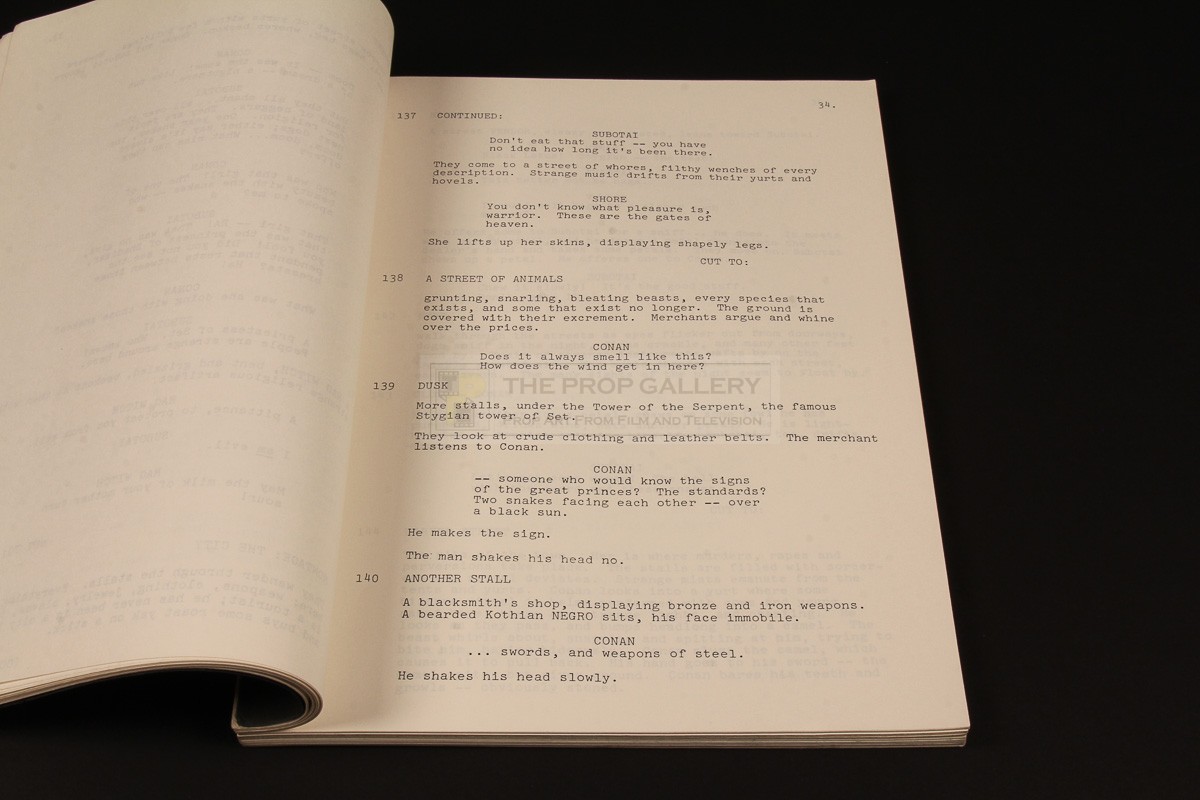 34.
137 CONTINUED:
SUBOTAI
Don't eat that stuff -- you have
no idea how long it's been there.
They come to a street of whores, filthy wenches of every
description. Strange music drifts from their yurts and
hovels.
SHORE
You don't know what pleasure is,
warrior. These are the gates of
heaven.
She lifts up her skins, displaying shapely legs.
CUT TO:
138 A STREET OF ANIMALS
grunting, snarling, bleating beasts, every species that
exists, and some that exist no longer. The ground is
covered with their excrement. Merchants argue and whine
over the prices.
CONAN
Does it always smell like this?
How does the wind get in here?
THE PROP GALLERY
PROP ART FROM FILM AND TELEVISION
139 DUSK
More stalls, under the Tower of the Serpent, the famous
Stygian tower of Set.
They look at crude clothing and leather belts. The merchant
listens to Conan.
CONAN
-- someone who would know the signs
of the great princes? The standards?
Two snakes facing each other -- over
a black sun.
He makes the sign.
The man shakes his head no.
140 ANOTHER STALL
A blacksmith's shop, displaying bronze and iron weapons.
A bearded Kothian NEGRO sits, his face immobile.
CONAN
... swords, and weapons of steel.
He shakes his head slowly.